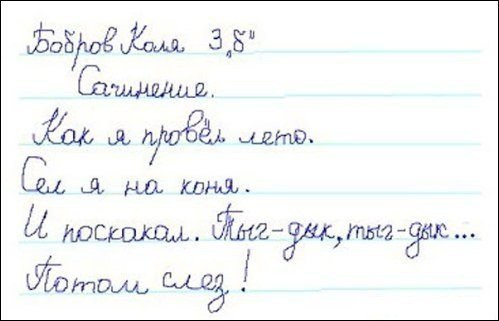 Бобров Коля 3„б"
Сочинение.
Как я провёл лето.
Сел я на коня.
И поскакал. Тыг-дык, тыг-дык...
Потом слез!